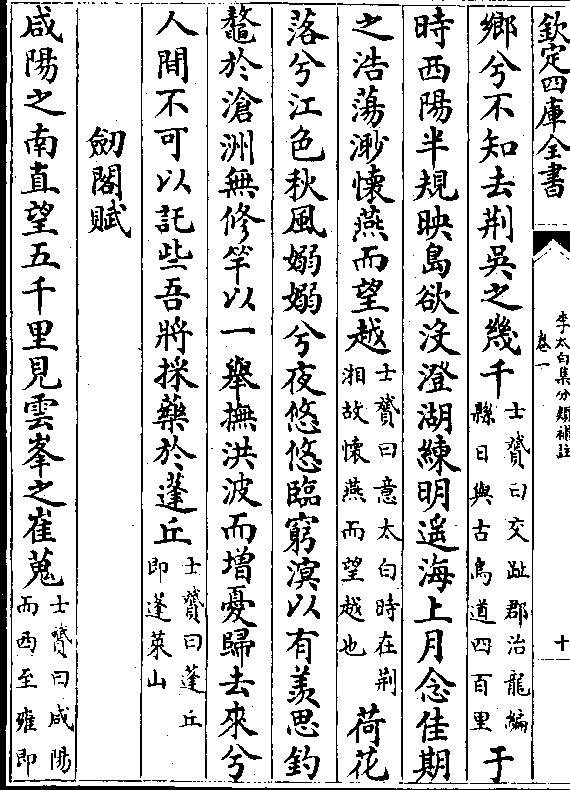 欽定四庫全書
李太白集分類補註
卷一
十
鄉兮不知去荆吳之幾千士贇曰交趾郡治龍編縣日與古鳥道四百里于
時西陽半規映島欲没澄湖練明遥海上月念佳期
之浩蕩渺懐燕而望越士贇曰意太白時在荆湘故懐燕而望越也荷花
落兮江色秋風嫋嫋兮夜悠悠臨窮溟以有羨思釣
鼇於滄洲無修竿以一舉撫洪波而增憂歸去來兮
人間不可以託些吾將採藥於蓬丘士贇曰蓬丘即蓬萊山
劒閣賦
咸陽之南直望五千里見雲峯之崔嵬士贇曰咸陽而西至雍即